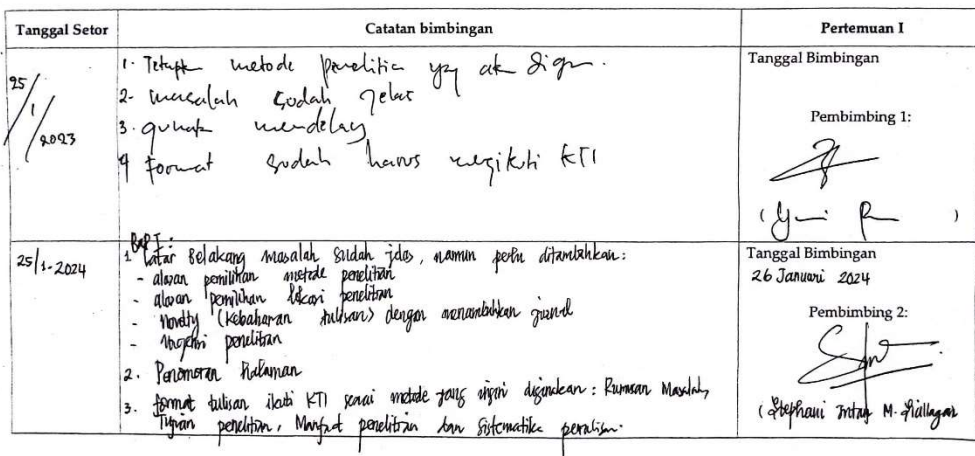 Tanggal Setor Catatan bimbingan Pertemuan I
25/1/2023
1. Tetapk metode penelitia yg ak digu.
2- masalah sudah jelas
3. gunak mendelay
4 Format sudah harus megikuti KTI
Tanggal Bimbingan
Pembimbing 1:
25/1-2024
BAB I:
1. Latar Belakang masalah sudah jelas, namun perlu ditambahkan:
- alasan pemilihan metode penelitian
- alasan pemilihan lokasi penelitian
- Novelty (kebaharuan tulisan) dengan menambahkan jurnal
- penelitian
2. Penomoran Halaman
3. format tulisan ikuti KTI sesuai metode yang ingin digunakan: Rumusan Masalah,
Tujuan penelitian, Manfaat penelitian dan Sistematika penulisan.
Tanggal Bimbingan
26 Januari 2024
Pembimbing 2:
(Stephani Intan M. Siallagan